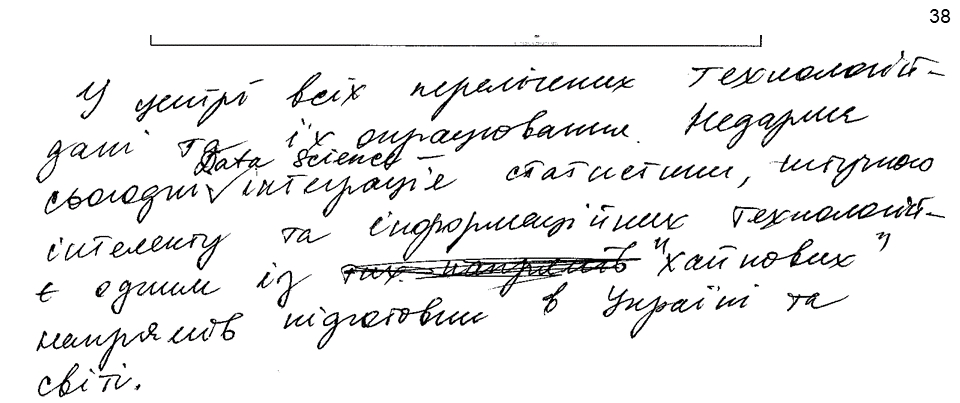 38
У центрі всіх перелічених технологій –
дані та їх опрацювання. Недарма
Data Science –
сьогодні інтеграція статистики, штучного
інтелекту та інформаційних технологій –
є одним із "хайпових"
напрямів підготовки в Україні та
світі.